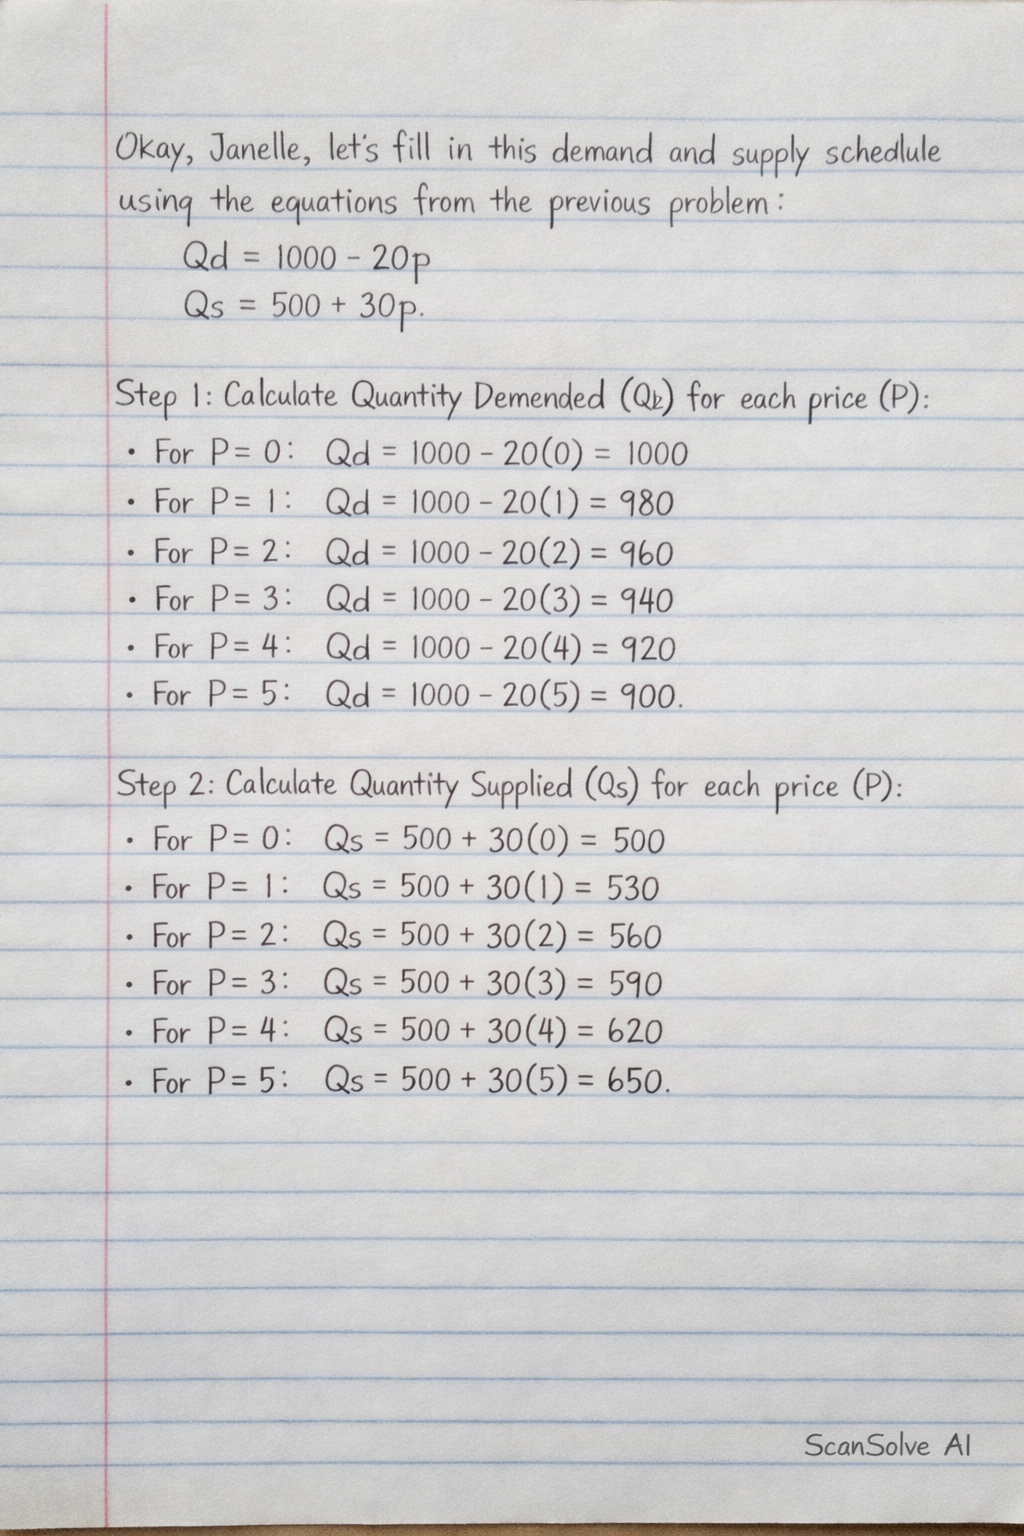 Okay, Janelle, let's fill in this demand and supply schedlule
using the equations from the previous problem:
Qd = 1000 - 20p
Qs = 500 + 30p.
Step 1: Calculate Quantity Demended (Qb) for each price (P):
• For P = 0: Qd = 1000 - 20(0) = 1000
• For P = 1: Qd = 1000 - 20(1) = 980
• For P = 2: Qd = 1000 - 20(2) = 960
• For P = 3: Qd = 1000 - 20(3) = 940
• For P = 4: Qd = 1000 - 20(4) = 920
• For P = 5: Qd = 1000 - 20(5) = 900.
Step 2: Calculate Quantity Supplied (Qs) for each price (P):
• For P = 0: Qs = 500 + 30(0) = 500
• For P = 1: Qs = 500 + 30(1) = 530
• For P = 2: Qs = 500 + 30(2) = 560
• For P = 3: Qs = 500 + 30(3) = 590
• For P = 4: Qs = 500 + 30(4) = 620
• For P = 5: Qs = 500 + 30(5) = 650.
ScanSolve AI